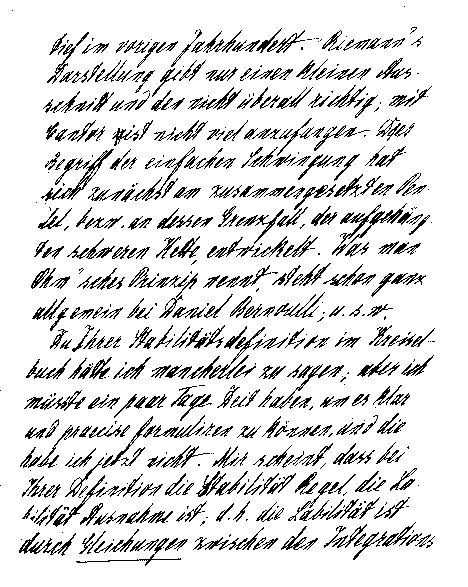 tief im vorigen Jahrhundert. Riemann's
Darstellung gibt nur einen kleinen Aus-
schnitt und den nicht überall richtig; mit
Cantor ist nicht viel anzufangen. Der
Begriff der einfachen Schwingung hat
sich zunächst am zusammengesetzten Pen-
del, bezw. an dessen Grenzfall, der aufgehäng-
ten schweren Kette, entwickelt. Was man
Ohm'sches Prinzip nennt, steht schon ganz
allgemein bei Daniel Bernoulli; u. s. w.
Zu Ihrer Stabilitätsdefinition im Kreisel-
buch hätte ich mancherlei zu sagen; aber ich
müsste ein paar Tage Zeit haben, um es klar
und praecise formuliren zu können, und die
habe ich jetzt nicht. Mir scheint, dass bei
Ihrer Definition die Stabilität Regel, die La-
bilität Ausnahme ist; d. h. die Labilität ist
durch Gleichungen zwischen den Integrations